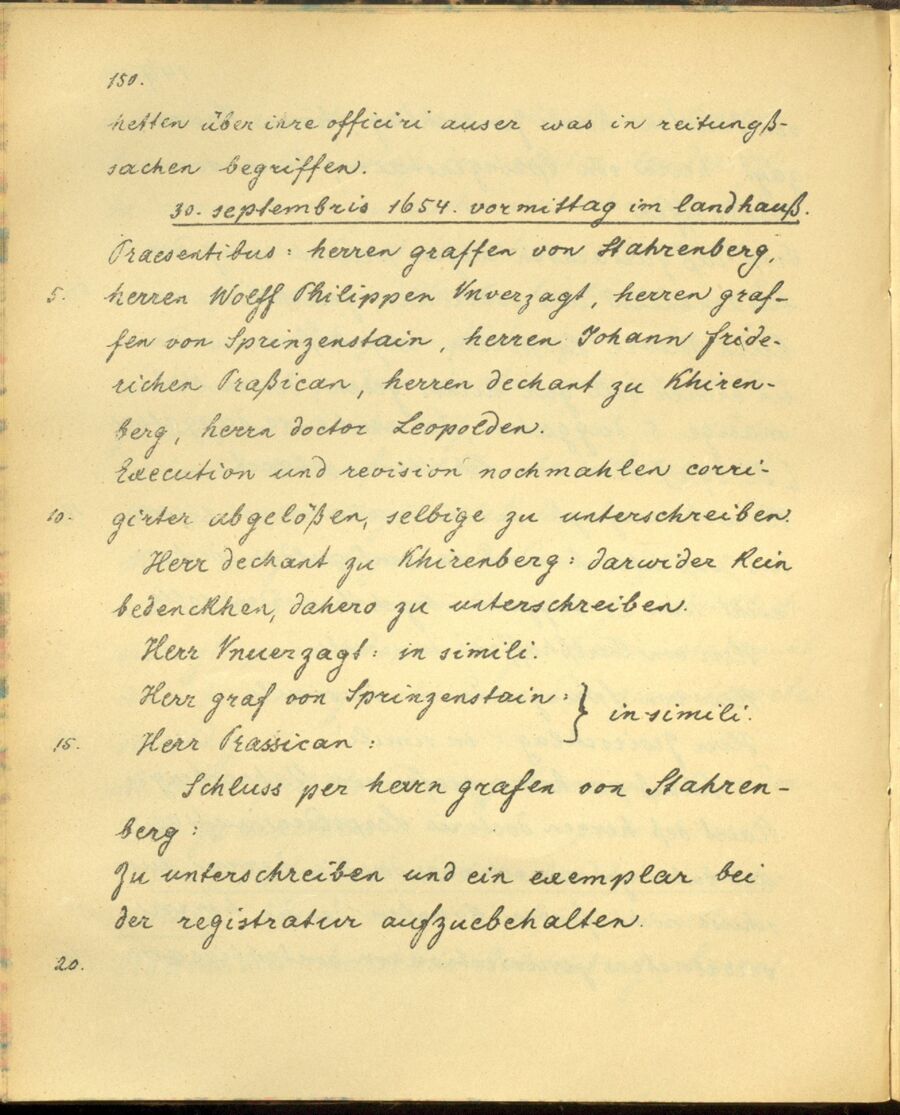 150.
hetten über ihre officiri auser was in reitungß-
sachen begriffen.
30. septembris 1654. vormittag im landhauß.
Praesentibus: herren graffen von Stahrenberg,
5. herren Wolff Philippen Vnverzagt, herren graf-
fen von Sprinzenstain, herren Johann fride-
richen Praßican, herren dechant zu Khiren-
berg, herrn doctor Leopolden.
Execution und revision nochmahlen corri-
10. girter abgelößen, selbige zu unterschreiben.
Herr dechant zu Khirenberg: darwider kein
bedenckhen, dahero zu unterschreiben.
Herr Vnuerzagt: in simili.
Herr graf von Sprinzenstain: } in simili.
15. Herr Prassican:
Schluss per herrn grafen von Stahren-
berg:
Zu unterschreiben und ein exemplar bei
der registratur aufzuebehalten.
20.